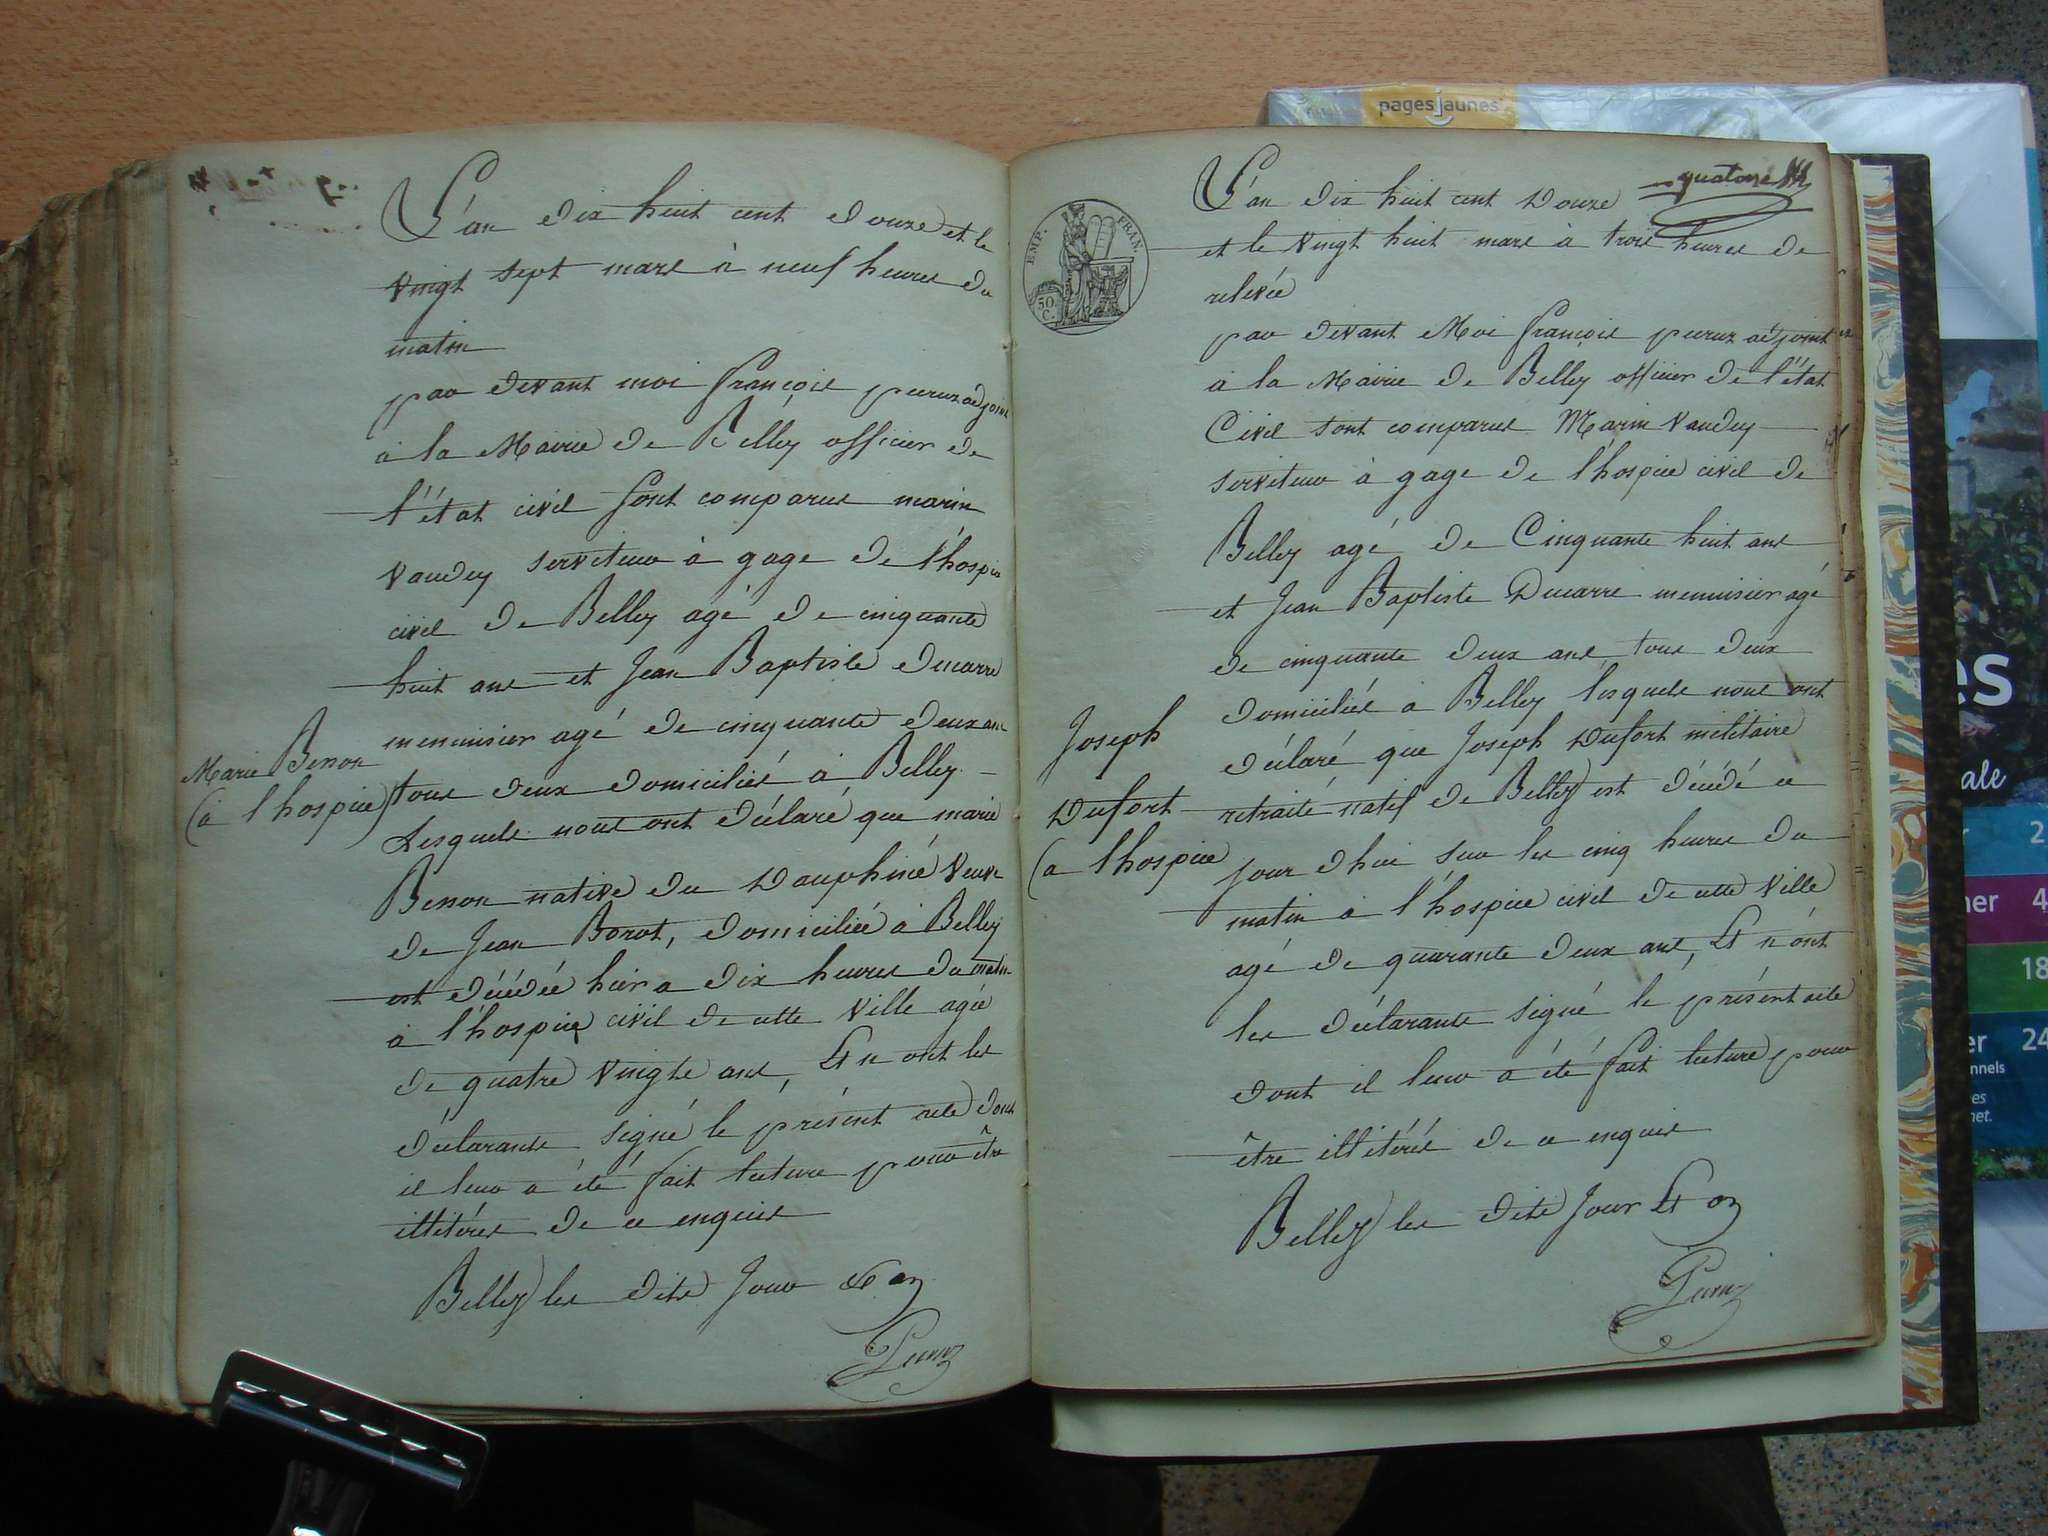 L'an dix huit cent douze et le
vingt sept mars à neuf heures du
matin
par devant moi françois peruz adjoint
à la Mairie de Belley officier de
l'état civil sont comparus marin
vaudey serviteur à gage de l'hospice
civil de Belley agé de cinquante
huit ans et Jean Baptiste ducarre
menuisier agé de cinquante deux ans
tous deux domiciliés à Belley
Lesquels nous ont déclaré que marie
Besson native du Dauphiné veuve
de Jean Borot, domiciliée à Belley
est décédée hier a dix heures du matin
à l'hospice civil de cette ville agée
de quatre vingts ans, Et n ont les
déclarants signé le présent acte dont
il leur a été fait lecture pour être
illitérés de ce enquis
Belley les dits Jour et an
Peruz
Marie Besson
(à l'hospice)
quatorze
L'an dix huit cent Douze
et le vingt huit mars à trois heures de
relevée
par devant Moi françois peruz adjoint
à la Mairie de Belley officier de l'état
Civil sont comparus Marin Vaudey
serviteur à gage de l'hospice civil de
Belley agé de Cinquante huit ans
et Jean Baptiste Ducarre menuisier agé
de cinquante deux ans tous deux
domiciliés à Belley lesquels nous ont
déclaré que Joseph Dufort militaire
retraité natif de Belley est décédé ce
jour d'hui sur les cinq heures du
matin à l'hospice civil de cette ville
agé de quarante deux ans, Et n'ont
les déclarants signé le présent acte
dont il leur a été fait lecture pour
être illitérés de ce enquis
Belley les dits Jour Et an
Peruz
Joseph
Dufort
(a l'hospice
EMP. FRAN.
50.
C.
pagesjaunes
es
ale
2
ner 4
18
er 24
nnels
es
net.